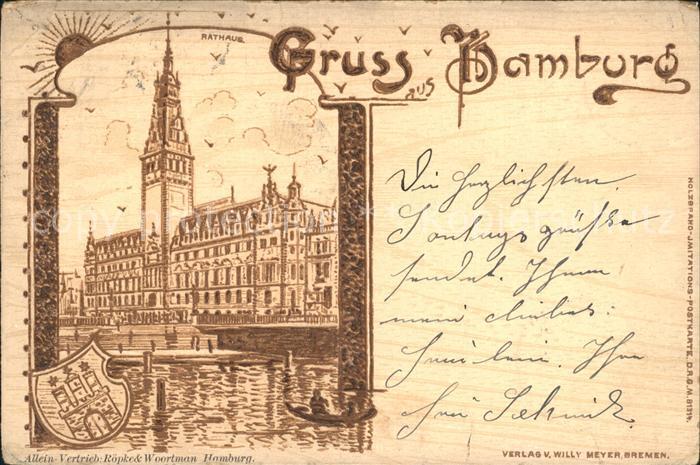 RATHAUS
Gruss aus Hamburg
Die herzlichsten
Sonntagsgrüße
sendet Ihnen
mein liebes
Fräulein. Ihr
HOLZBRAND-IMITATIONS-POSTKARTE, D.R.G.M.
Allein-Vertrieb: Röpke & Woortman Hamburg.
VERLAG V. WILLY MEYER, BREMEN.